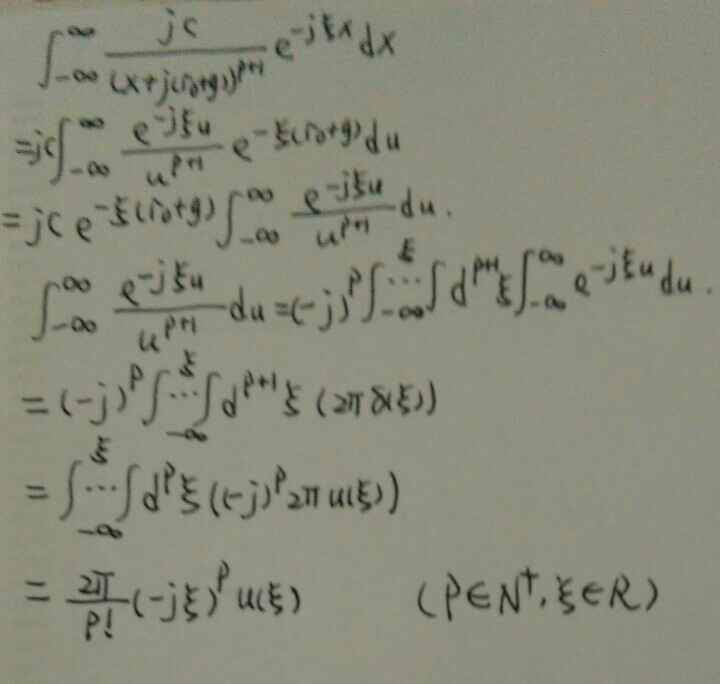 ∫_{-∞}^{∞} \frac{jc}{(x+j(r₀+g))^{p+1}} e^{-jξx} dx
= jc∫_{-∞}^{∞} \frac{e^{-jξu}}{u^{p+1}} e^{-ξ(r₀+g)} du
= jc e^{-ξ(r₀+g)} ∫_{-∞}^{∞} \frac{e^{-jξu}}{u^{p+1}} du.
∫_{-∞}^{∞} \frac{e^{-jξu}}{u^{p+1}} du = (-j)^p ∫_{-∞}^{ξ}⋯∫ d^{p+1}ξ ∫_{-∞}^{∞} e^{-jξu} du.
= (-j)^p ∫_{-∞}^{ξ}⋯∫ d^{p+1}ξ (2πδ(ξ))
= ∫_{-∞}^{ξ}⋯∫ d^pξ ((-j)^p 2π u(ξ))
= \frac{2π}{p!} (-jξ)^p u(ξ) (P∈N⁺, ξ∈R)